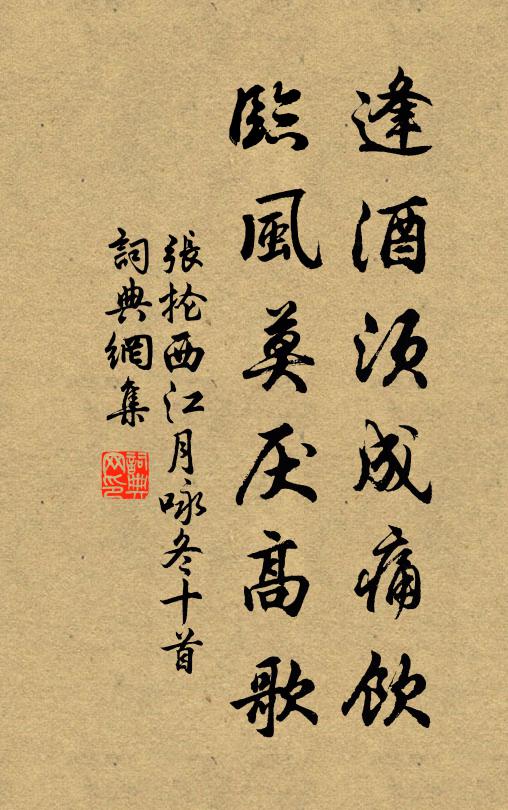 逢酒须成痛飲
臨風莫厌高歌
張抡西江月咏冬十首
詞典網集
詞典
网印